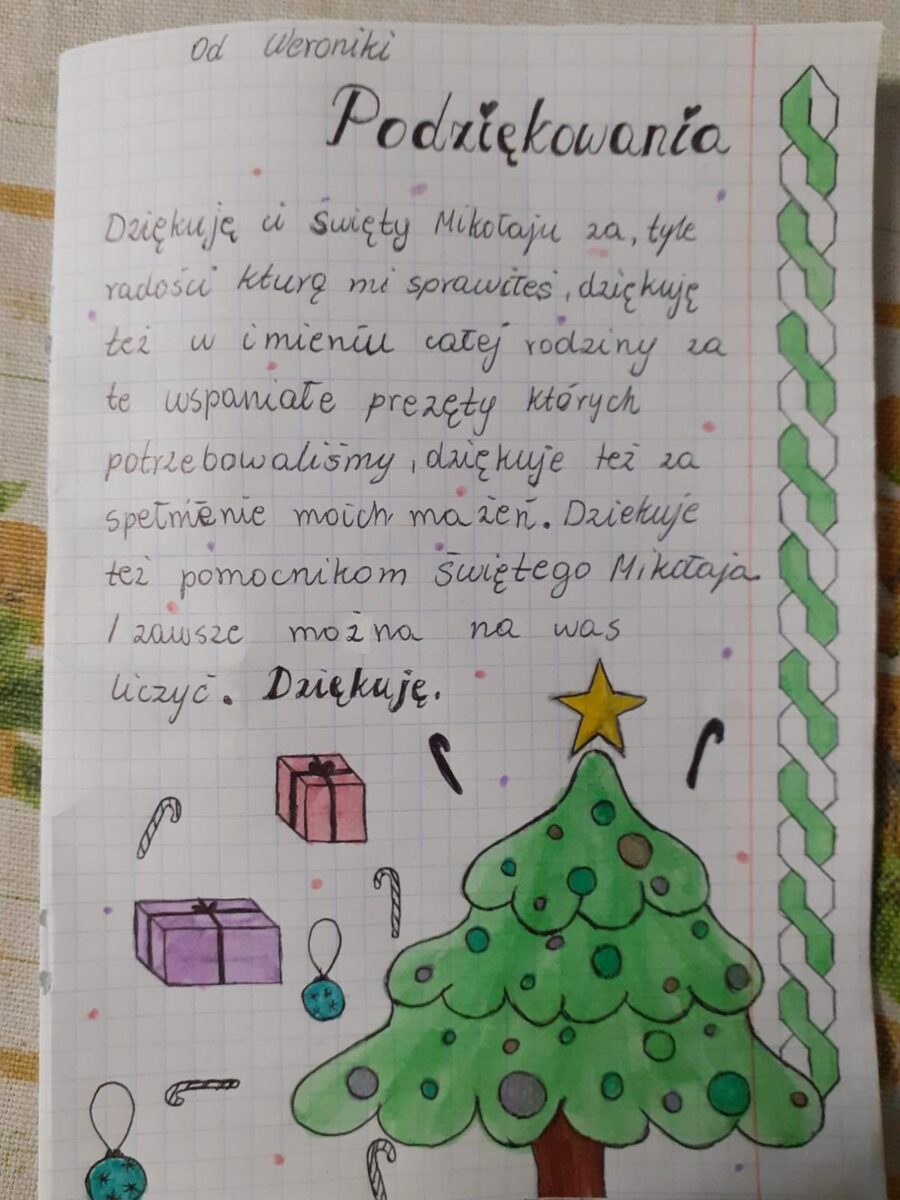 Od Weroniki
Podziękowania
Dziękuję ci Święty Mikołaju za, tyle
radości kturą mi sprawiłeś, dziękuję
też w imieniu całej rodziny za
te wspaniałe prezęty których
potrzebowaliśmy, dziękuje też za
spełnienie moich mażeń. Dziekuje
też pomocnikom Świętego Mikołaja.
I zawsze można na was
liczyć. Dziękuję.